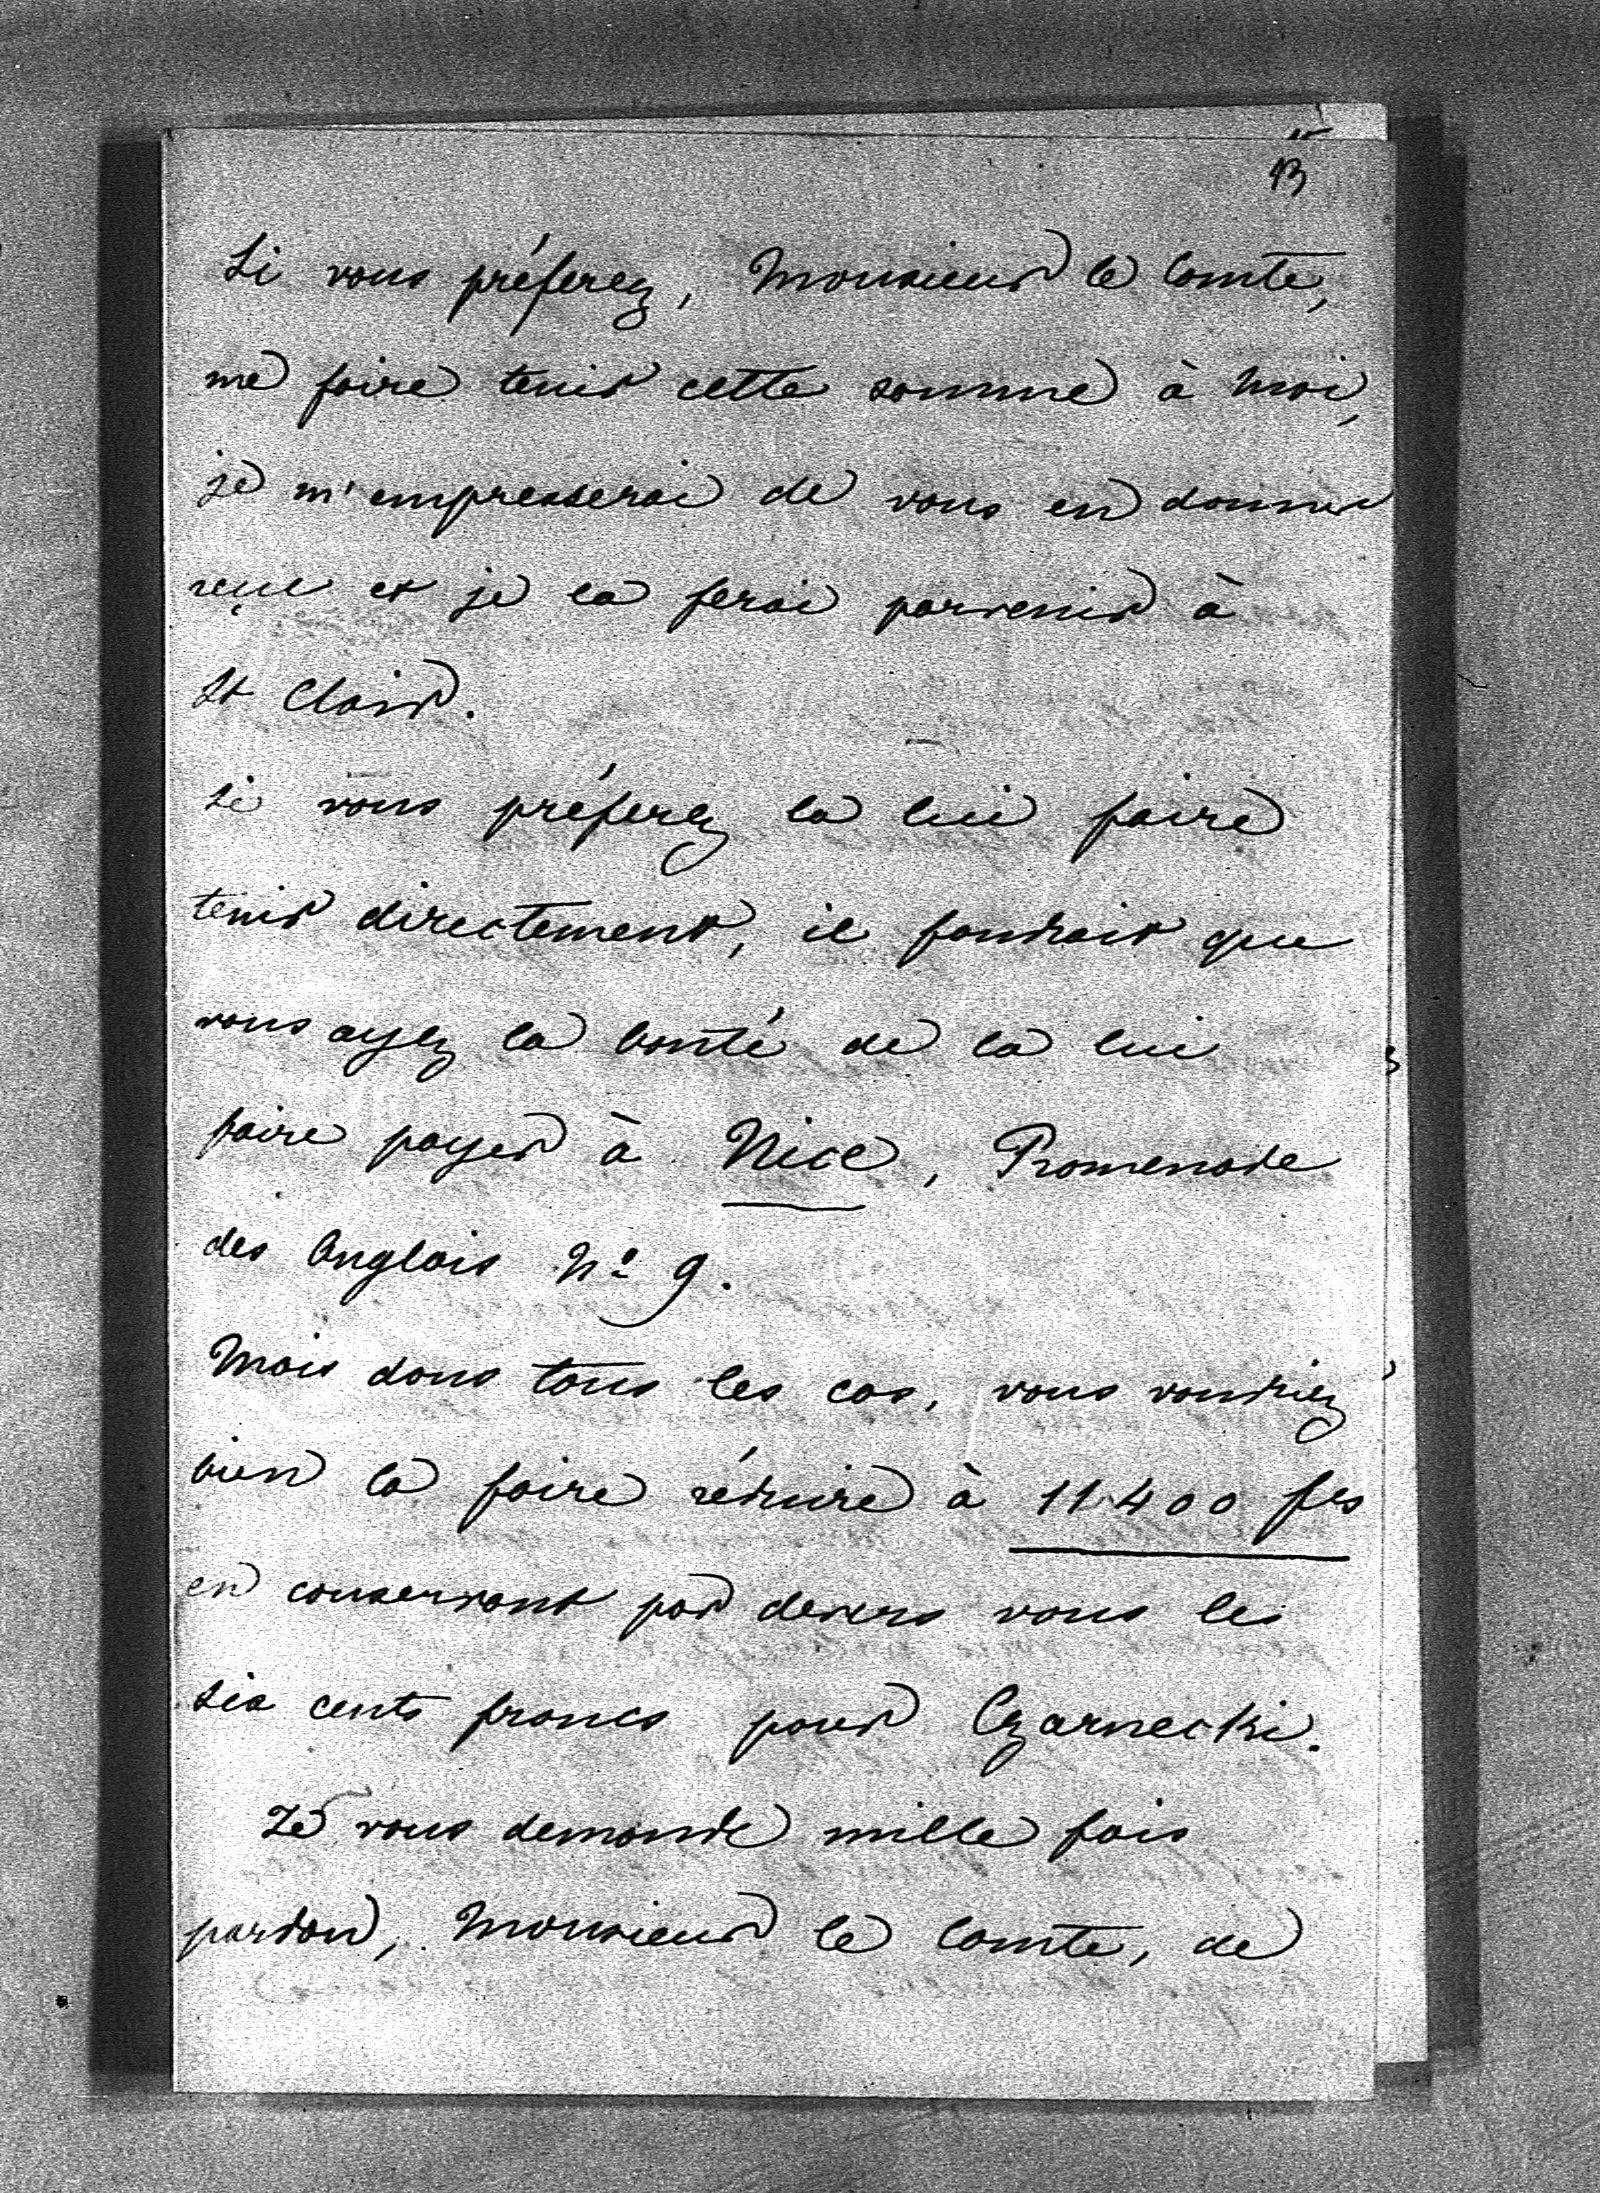 13
Si vous préferez, Monsieur le Comte,
me faire tenir cette somme à moi,
je m'empresserai de vous en donner
reçu et je la ferai parvenir à
St Clair.
Si vous préferez la lui faire
tenir directement, il faudrait que
vous ayez la bonté de la lui
faire payer à Nice, Promenade
des Anglais No 9.
Mais dans tous les cas, vous voudriez
bien la faire réduire à 11.400 frs
en conservant par devers vous les
six cents francs pour Czarnecki.
Je vous demande mille fois
pardon, Monsieur le Comte, de